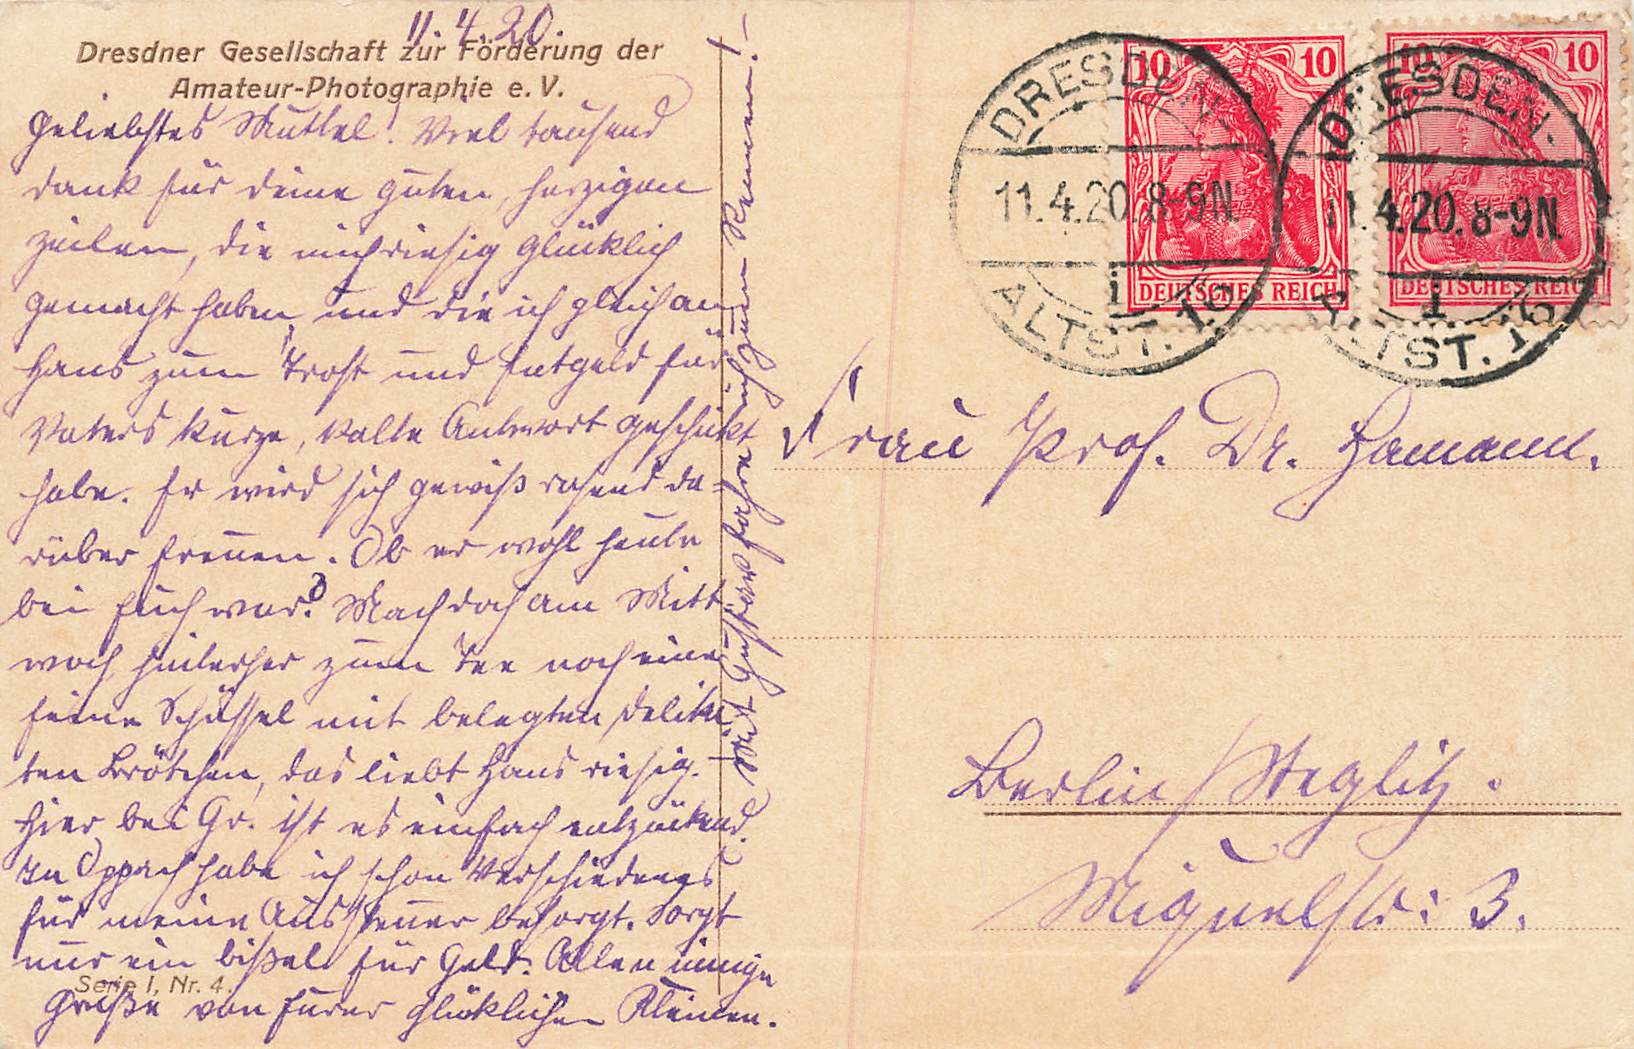 11.4.20.
Dresdner Gesellschaft zur Förderung der
Amateur-Photographie e. V.
Geliebtes Muttel! Viel tausend
Dank für deine guten, herzigen
Zeilen, die mich riesig glücklich
gemacht haben, und die ich gleich an
Hans zum Trost und Entgeld für
Vaters kurze, kalte Antwort geschickt
habe. Er wird sich gewiß rasend da-
rüber freuen. Ob er wohl heute
bei Euch war? Mach doch am Mitt
woch hinterher zum Tee noch eine
feine Schüssel mit belegten, delika
ten Brötchen, das liebt Hans riesig. -
Hier bei Gr. ist es einfach entzückend.
In Oppach habe ich schon Verschiedenes
für meine Aussteuer besorgt. Sorgt
nur ein bißel für Geld. Allen innige
Grüße von Eurer glücklichen Kleinen.
Serie I, Nr. 4.
Mit Gustav fahre ich zum Rennen!
10 10
DEUTSCHES REICH
10 10
DEUTSCHES REICH
DRESDEN.
11.4.20. 8-9N.
ALTST. 16
DRESDEN.
11.4.20. 8-9N.
ALTST. 16
Frau Prof. Dr. Hamann.
Berlin/Steglitz.
Miquelstr: 3.